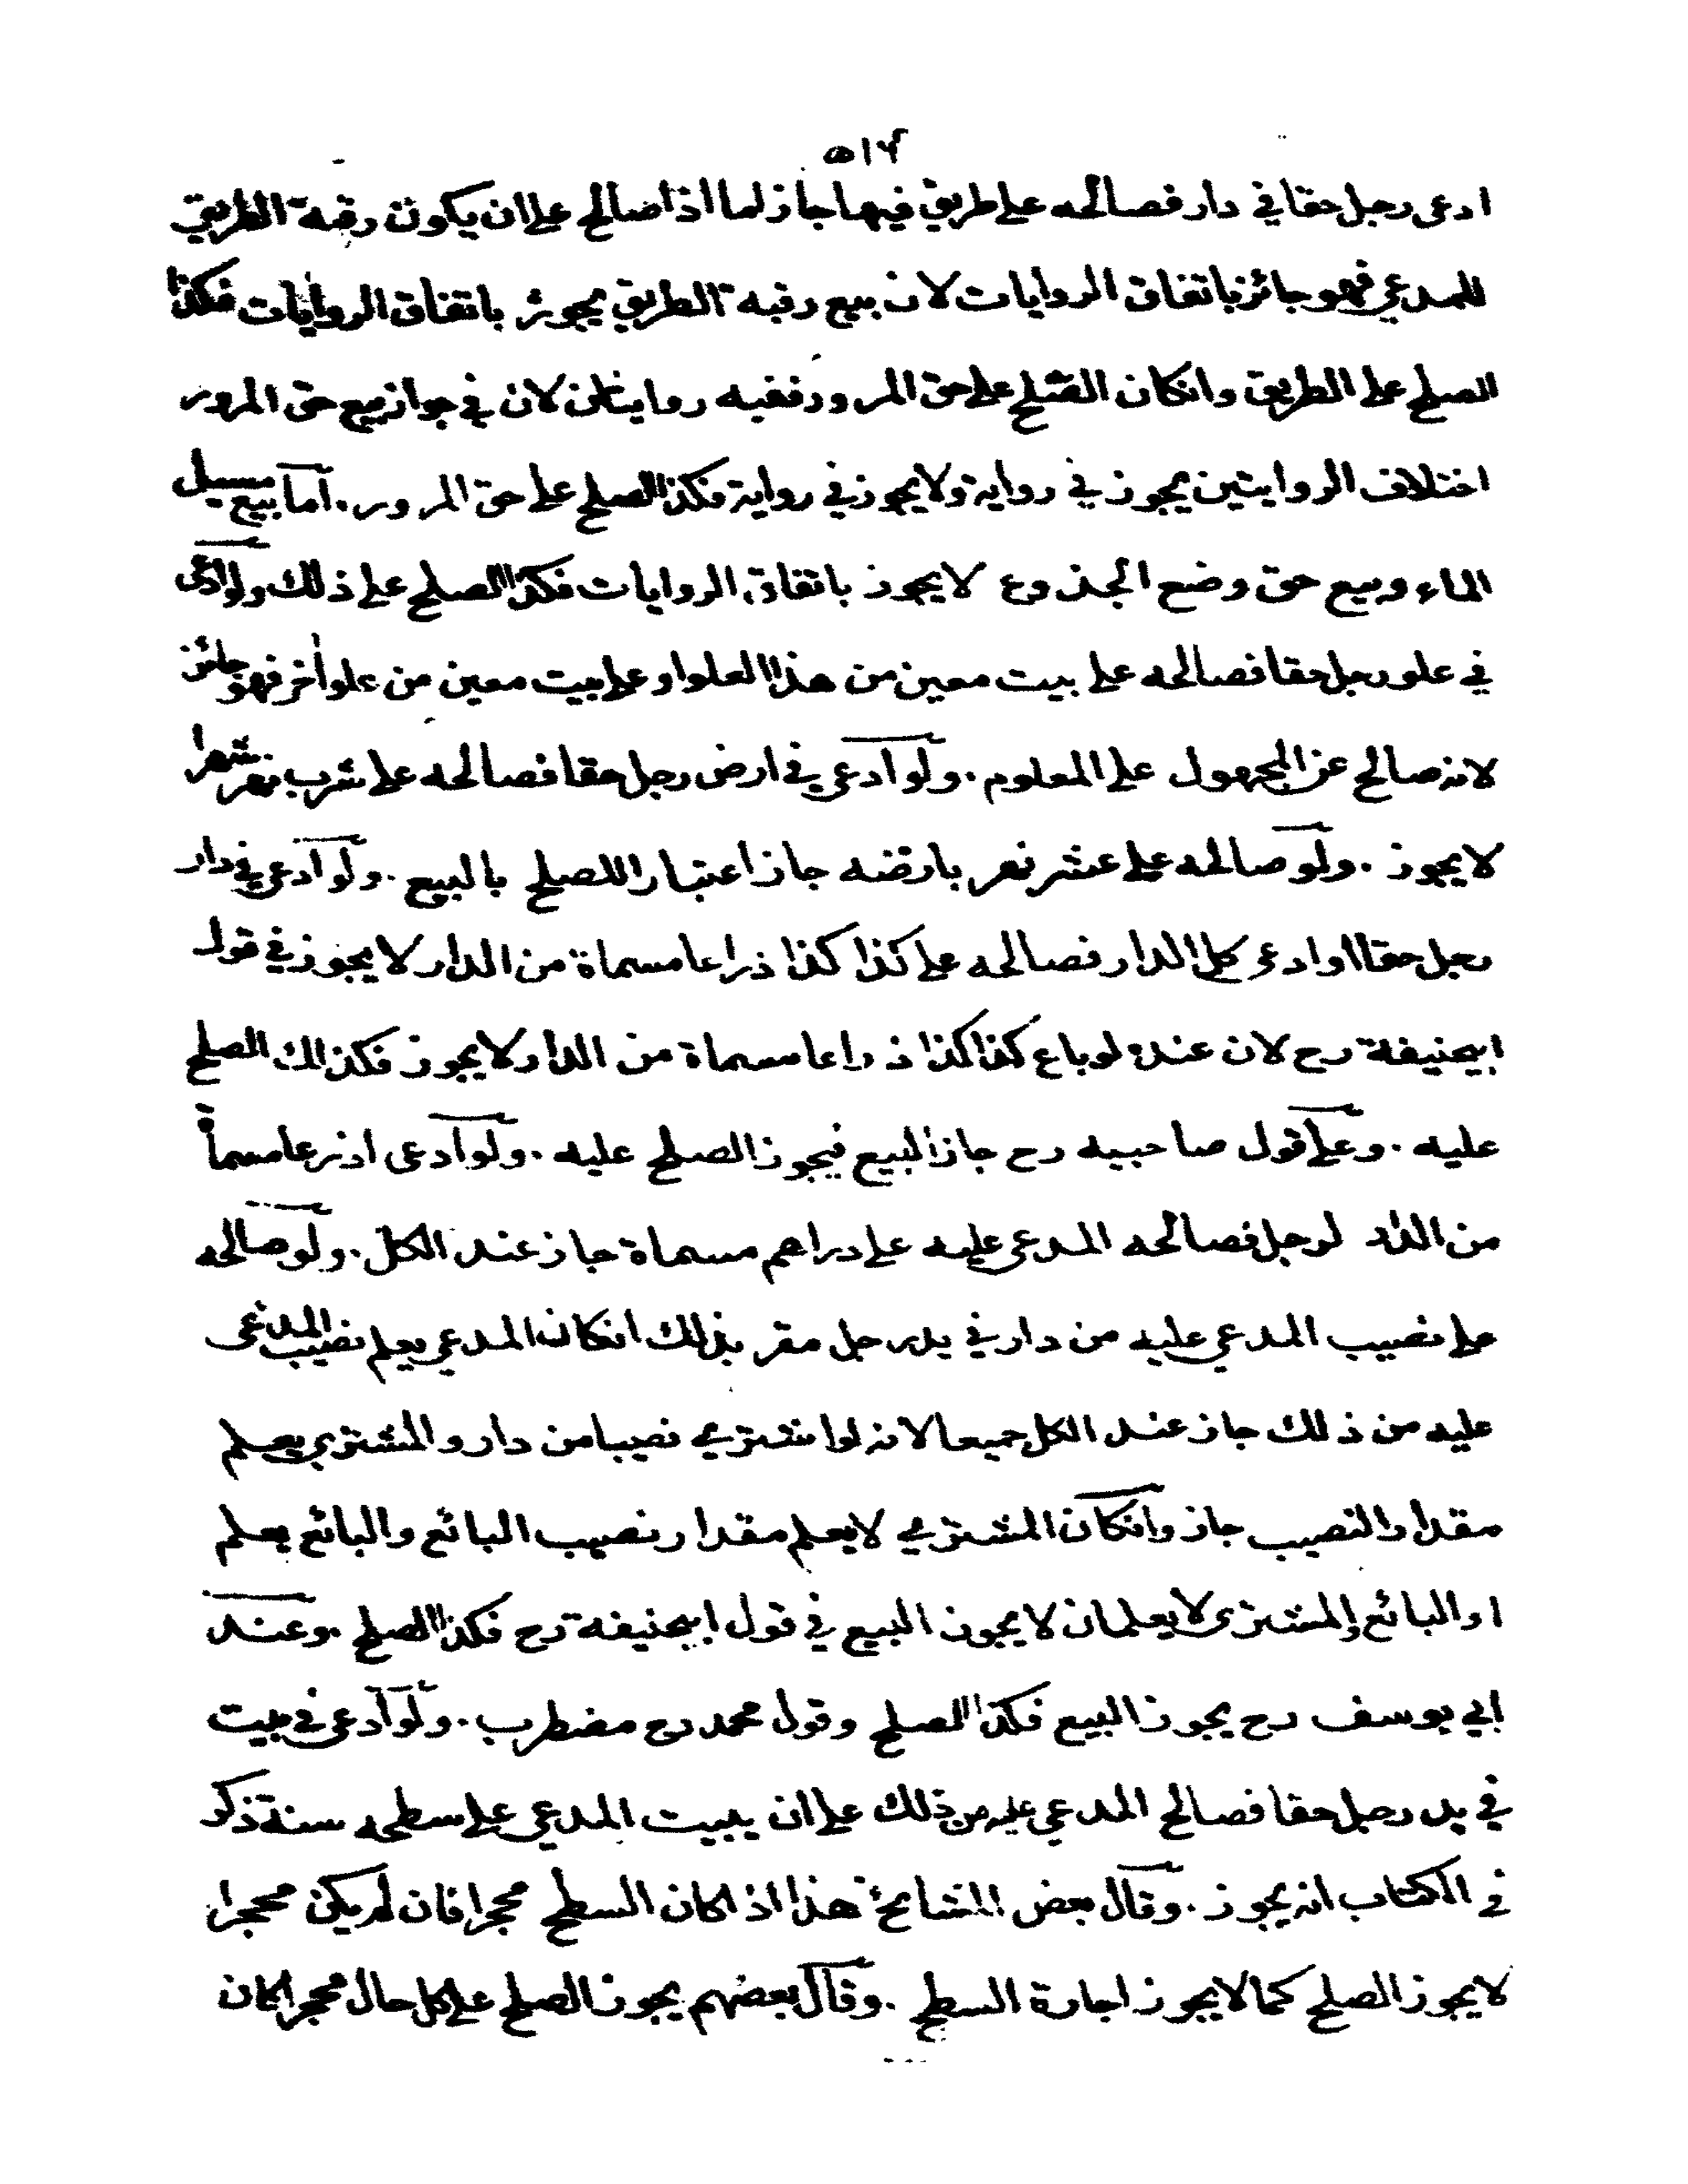 ٥١٦
ادعى رجل حقا في دار فصالحه على طريق فيها جاز لما اذا صالح على ان يكون رقبة الطريق
للمدعي فهو جائز باتفاق الروايات لان بيع رقبه الطريق يجوز باتفاق الروايات فكذا
الصلح على الطريق وانكان الصلح على حق المرور ففيه روايتان لان في جواز بيع حق المرور
اختلاف الروايتين يجوز في رواية ولا يجوز في رواية فكذا الصلح على حق المرور . اما بيع مسيل
الماء وبيع حق وضع الجذوع لا يجوز باتفاق الروايات فكذا الصلح على ذلك ولو ادعى
في علو رجل حقا فصالحه على بيت معين من هذا العلو او على بيت معين من علو اخر فهو جائز
لانه صالح عن المجهول على المعلوم . ولو ادعى في ارض رجل حقا فصالحه على شرب نهر شهرا
لا يجوز . ولو صالحه على عشر نهر بارضه جاز اعتبارا للصلح بالبيع . ولو ادعى في دار
رجل حقا او ادعى كل الدار فصالحه على كذا كذا ذراعا مسماة من الدار لا يجوز في قول
ابيحنيفة رح لان عنده لو باع كذا كذا ذراعا مسماة من الدار لا يجوز فكذلك الصلح
عليه . وعلى قول صاحبيه رح جاز البيع فيجوز الصلح عليه . ولو ادعى اذرعا مسماة
من الدار لرجل فصالحه المدعى عليه على دراهم مسماة جاز عند الكل . ولو صالحه
على نصيب المدعي عليه من دار في يد رجل مقر بذلك انكان المدعي يعلم نصيب المدعى
عليه من ذلك جاز عند الكل جميعا لانه لو اشترى نصيبا من دار والمشتري يعلم
مقدار النصيب جاز وانكان المشتري لا يعلم مقدار نصيب البائع والبائع يعلم
او البائع والمشترى لا يعلمان لا يجوز البيع في قول ابيحنيفة رح فكذا الصلح . وعند
ابي يوسف رح يجوز البيع فكذا الصلح وقول محمد رح مضطرب . ولو ادعى في بيت
في يد رجل حقا فصالح المدعي عليه من ذلك على ان يبيت المدعي على سطحه سنة ذكر
في الكتاب انه يجوز . وقال بعض المشايخ هذا اذا كان السطح محجرا فان لم يكن محجرا
لا يجوز الصلح كما لا يجوز اجارة السطح . وقال بعضهم يجوز الصلح على كل حال محجرا كان